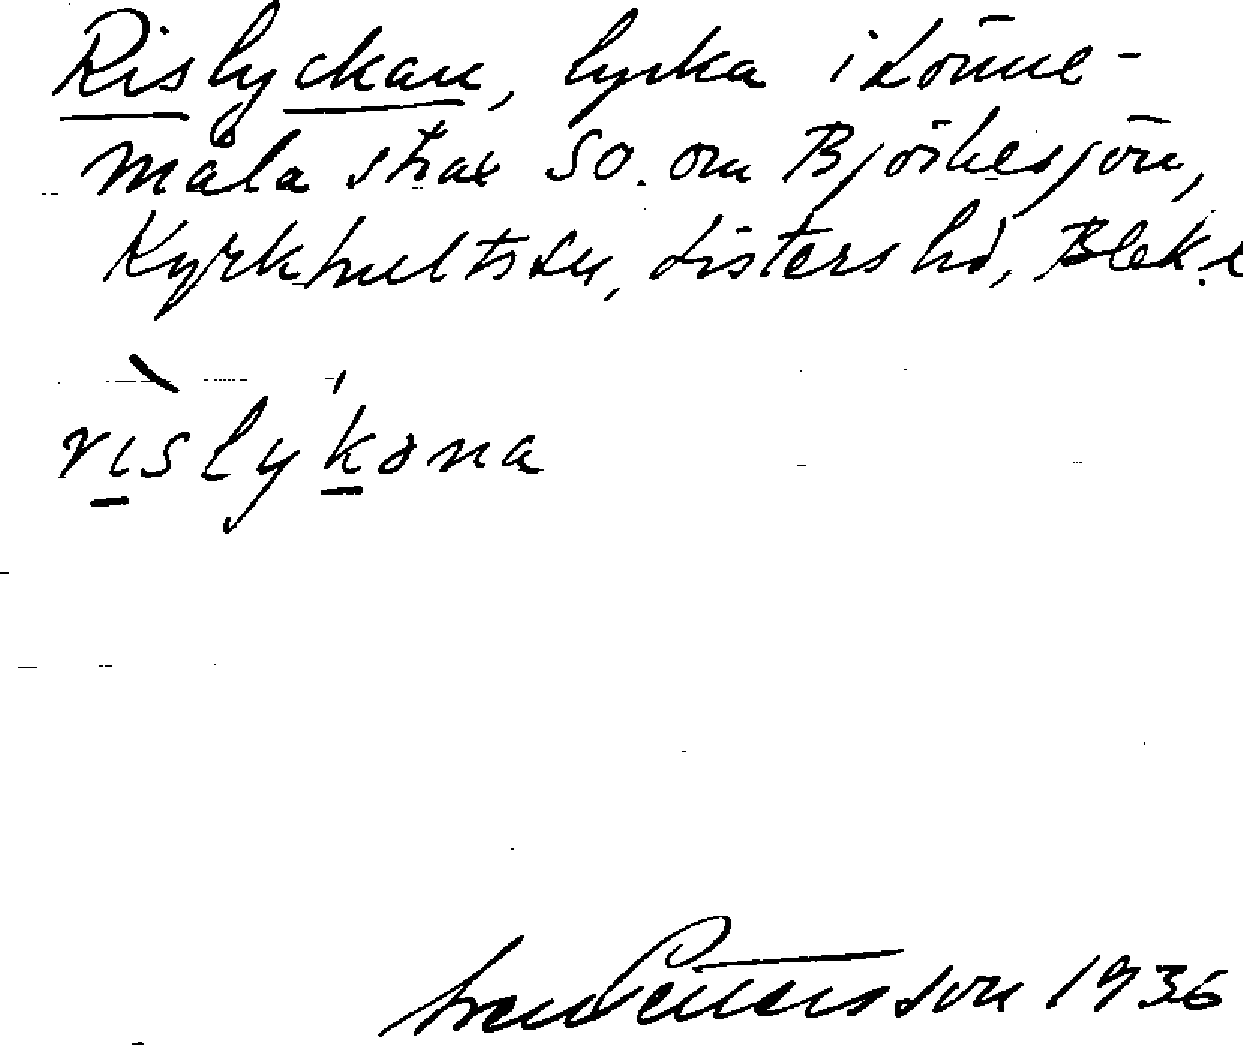 Rislyckan, lycka i Lönne-
måla strax SO. om Björkesjön,
Kyrkhults sn, Listers hd, Blek.e
rislykəna
Pettersson 1936